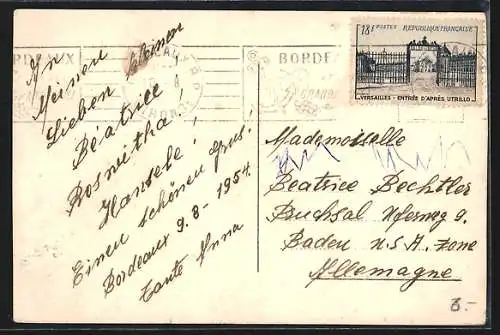 An
Meinen kleinen
Lieben
Béatrice!
Roswitha!
Hansele!
Einen schönen grus.
Bordeaux 9.8-1954
Tante Anna
BORDE
18F POSTES RÉPUBLIQUE FRANÇAISE
VERSAILLES - ENTRÉE D'APRÈS UTRILLO
Mademoiselle
Beatrice Bechtler
Bruchsal Uferweg 9.
Baden U.S.A. Zone
Allemagne
8.-